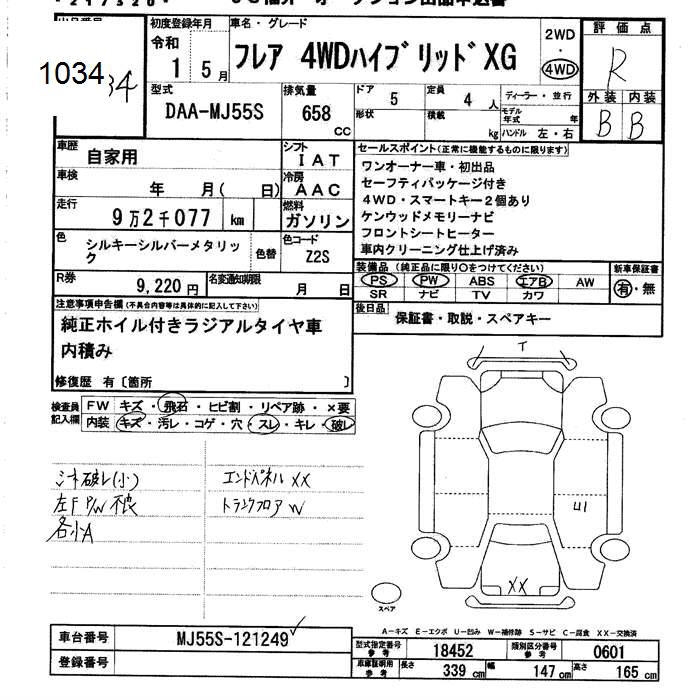 初度登録年月
車名・グレード
評価点
令和
1 5月
フレア 4WDハイブリッドXG
2WD
・
4WD
R
1034
34
外装 内装
B B
型式
DAA-MJ55S
排気量
658
CC
ドア
5
定員
4人
ディーラー・並行
形状
積載
kg
モデル年式
年
ハンドル 左・右
車歴
自家用
シフト
IAT
車検
年 月( 日)
冷房
AAC
走行
9万2千077 km
燃料
ガソリン
色
シルキーシルバーメタリック
色替
色コード
Z2S
R券
9,220円
名変通知期限
月 日
セールスポイント(正常に機能するものに限ります)
ワンオーナー車・初出品
セーフティパッケージ付き
4WD・スマートキー2個あり
ケンウッドメモリーナビ
フロントシートヒーター
車内クリーニング仕上げ済み
装備品(純正品に限り○をつけてください)
新車保証書
PS PW ABS エアB AW
有・無
SR ナビ TV カワ
後日品
保証書・取説・スペアキー
注意事項申告欄(不具合内容等は具体的に記入して下さい)
純正ホイル付きラジアルタイヤ車
内積み
修復歴 有〔箇所 〕
検査員
記入欄
FW キズ・飛石・ヒビ割・リペア跡・×要
内装 キズ・汚レ・コゲ・穴・スレ・キレ・破レ
シート破レ(小)
左F P/W 不良
各小A
エンドパネル XX
トランクフロア W
T
U1
XX
スペア
A-キズ E-エクボ U-凹み W-補修跡 S-サビ C-腐食 XX-交換済
車台番号
MJ55S-121249
登録番号
型式指定番号
参考
18452
類別区分番号
参考
0601
車庫証明用
参考
長さ
339 cm
幅
147 cm
高さ
165 cm